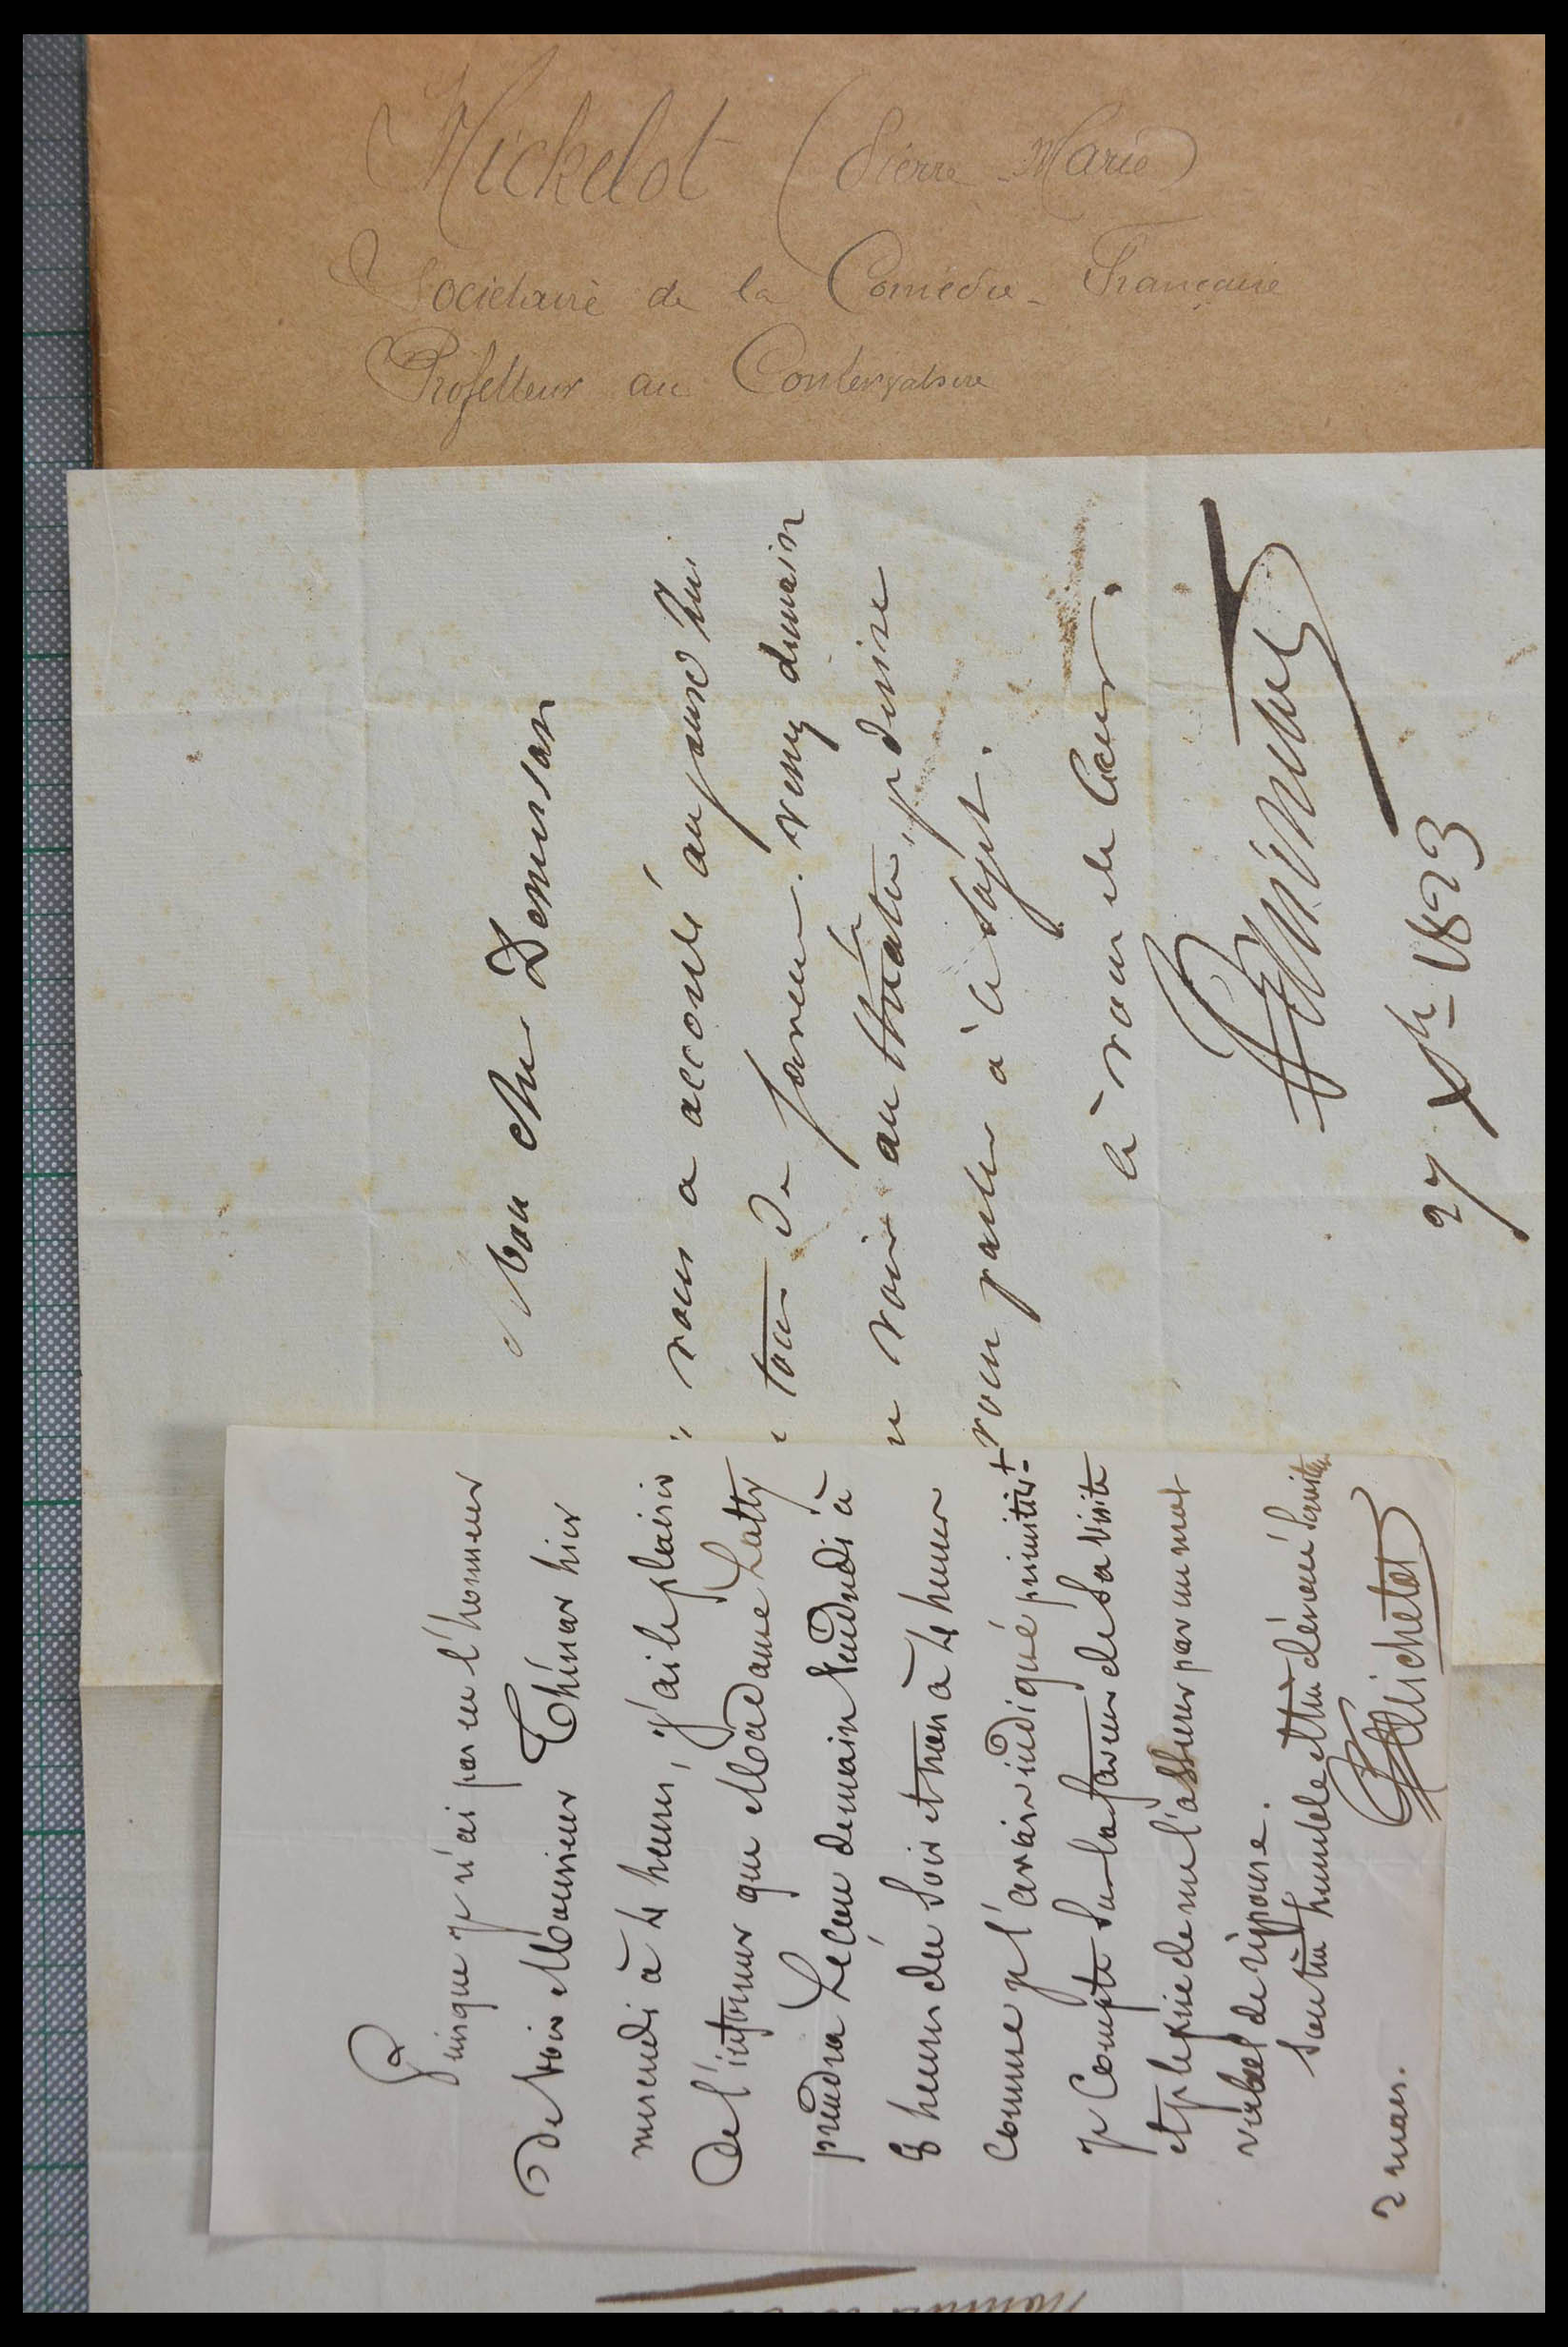 Michelot (Pierre-Marie)
Sociétaire de la Comédie-Française
Professeur au Conservatoire
Mon cher
vous a accordé aujourd'hui
tour de faveur. venez demain
voir au théâtre, je désire
vous parler à ce sujet.
à vous de cœur.
27 Xbre 1823
Puisque je n'ai pas eu l'honneur
de voir Monsieur Thénar hier
mercredi à 4 heures, j'ai le plaisir
de l'informer que Madame Latty
prendra Leçon demain Vendredi à
8 heures du soir et non à 4 heures
comme je l'avais indiqué primitivt.
je compte sur la faveur de sa visite
et je le prie de me l'assurer par un mot
verbal de réponse.
Son très humble et très dévoué Serviteur
PMichelot
2 mars.